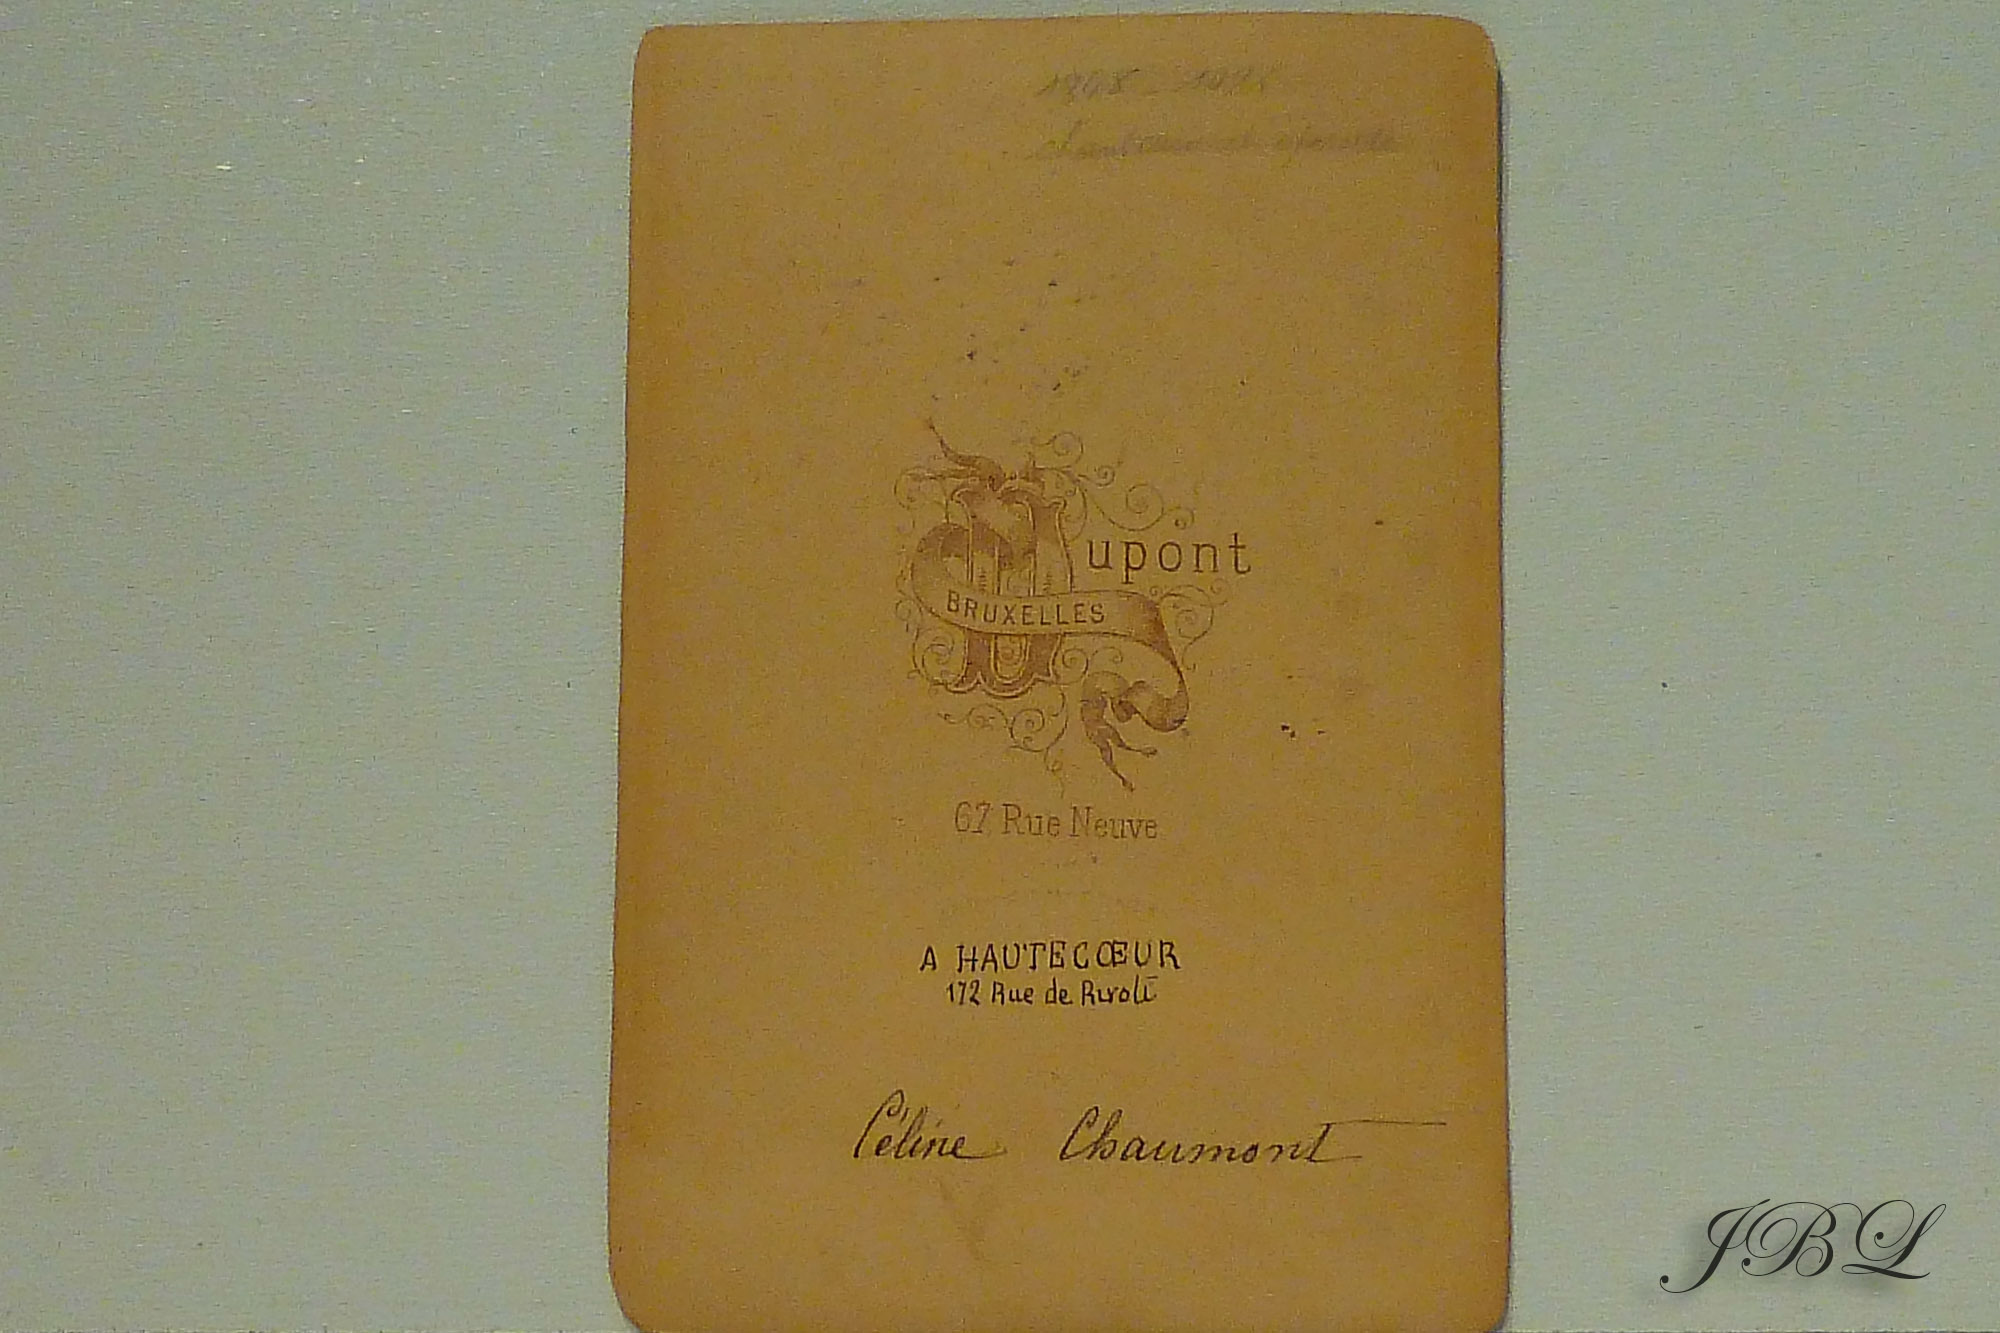 Dupont
BRUXELLES
67 Rue Neuve
A HAUTECŒUR
172 Rue de Rivoli
Céline Chaumont
JBL